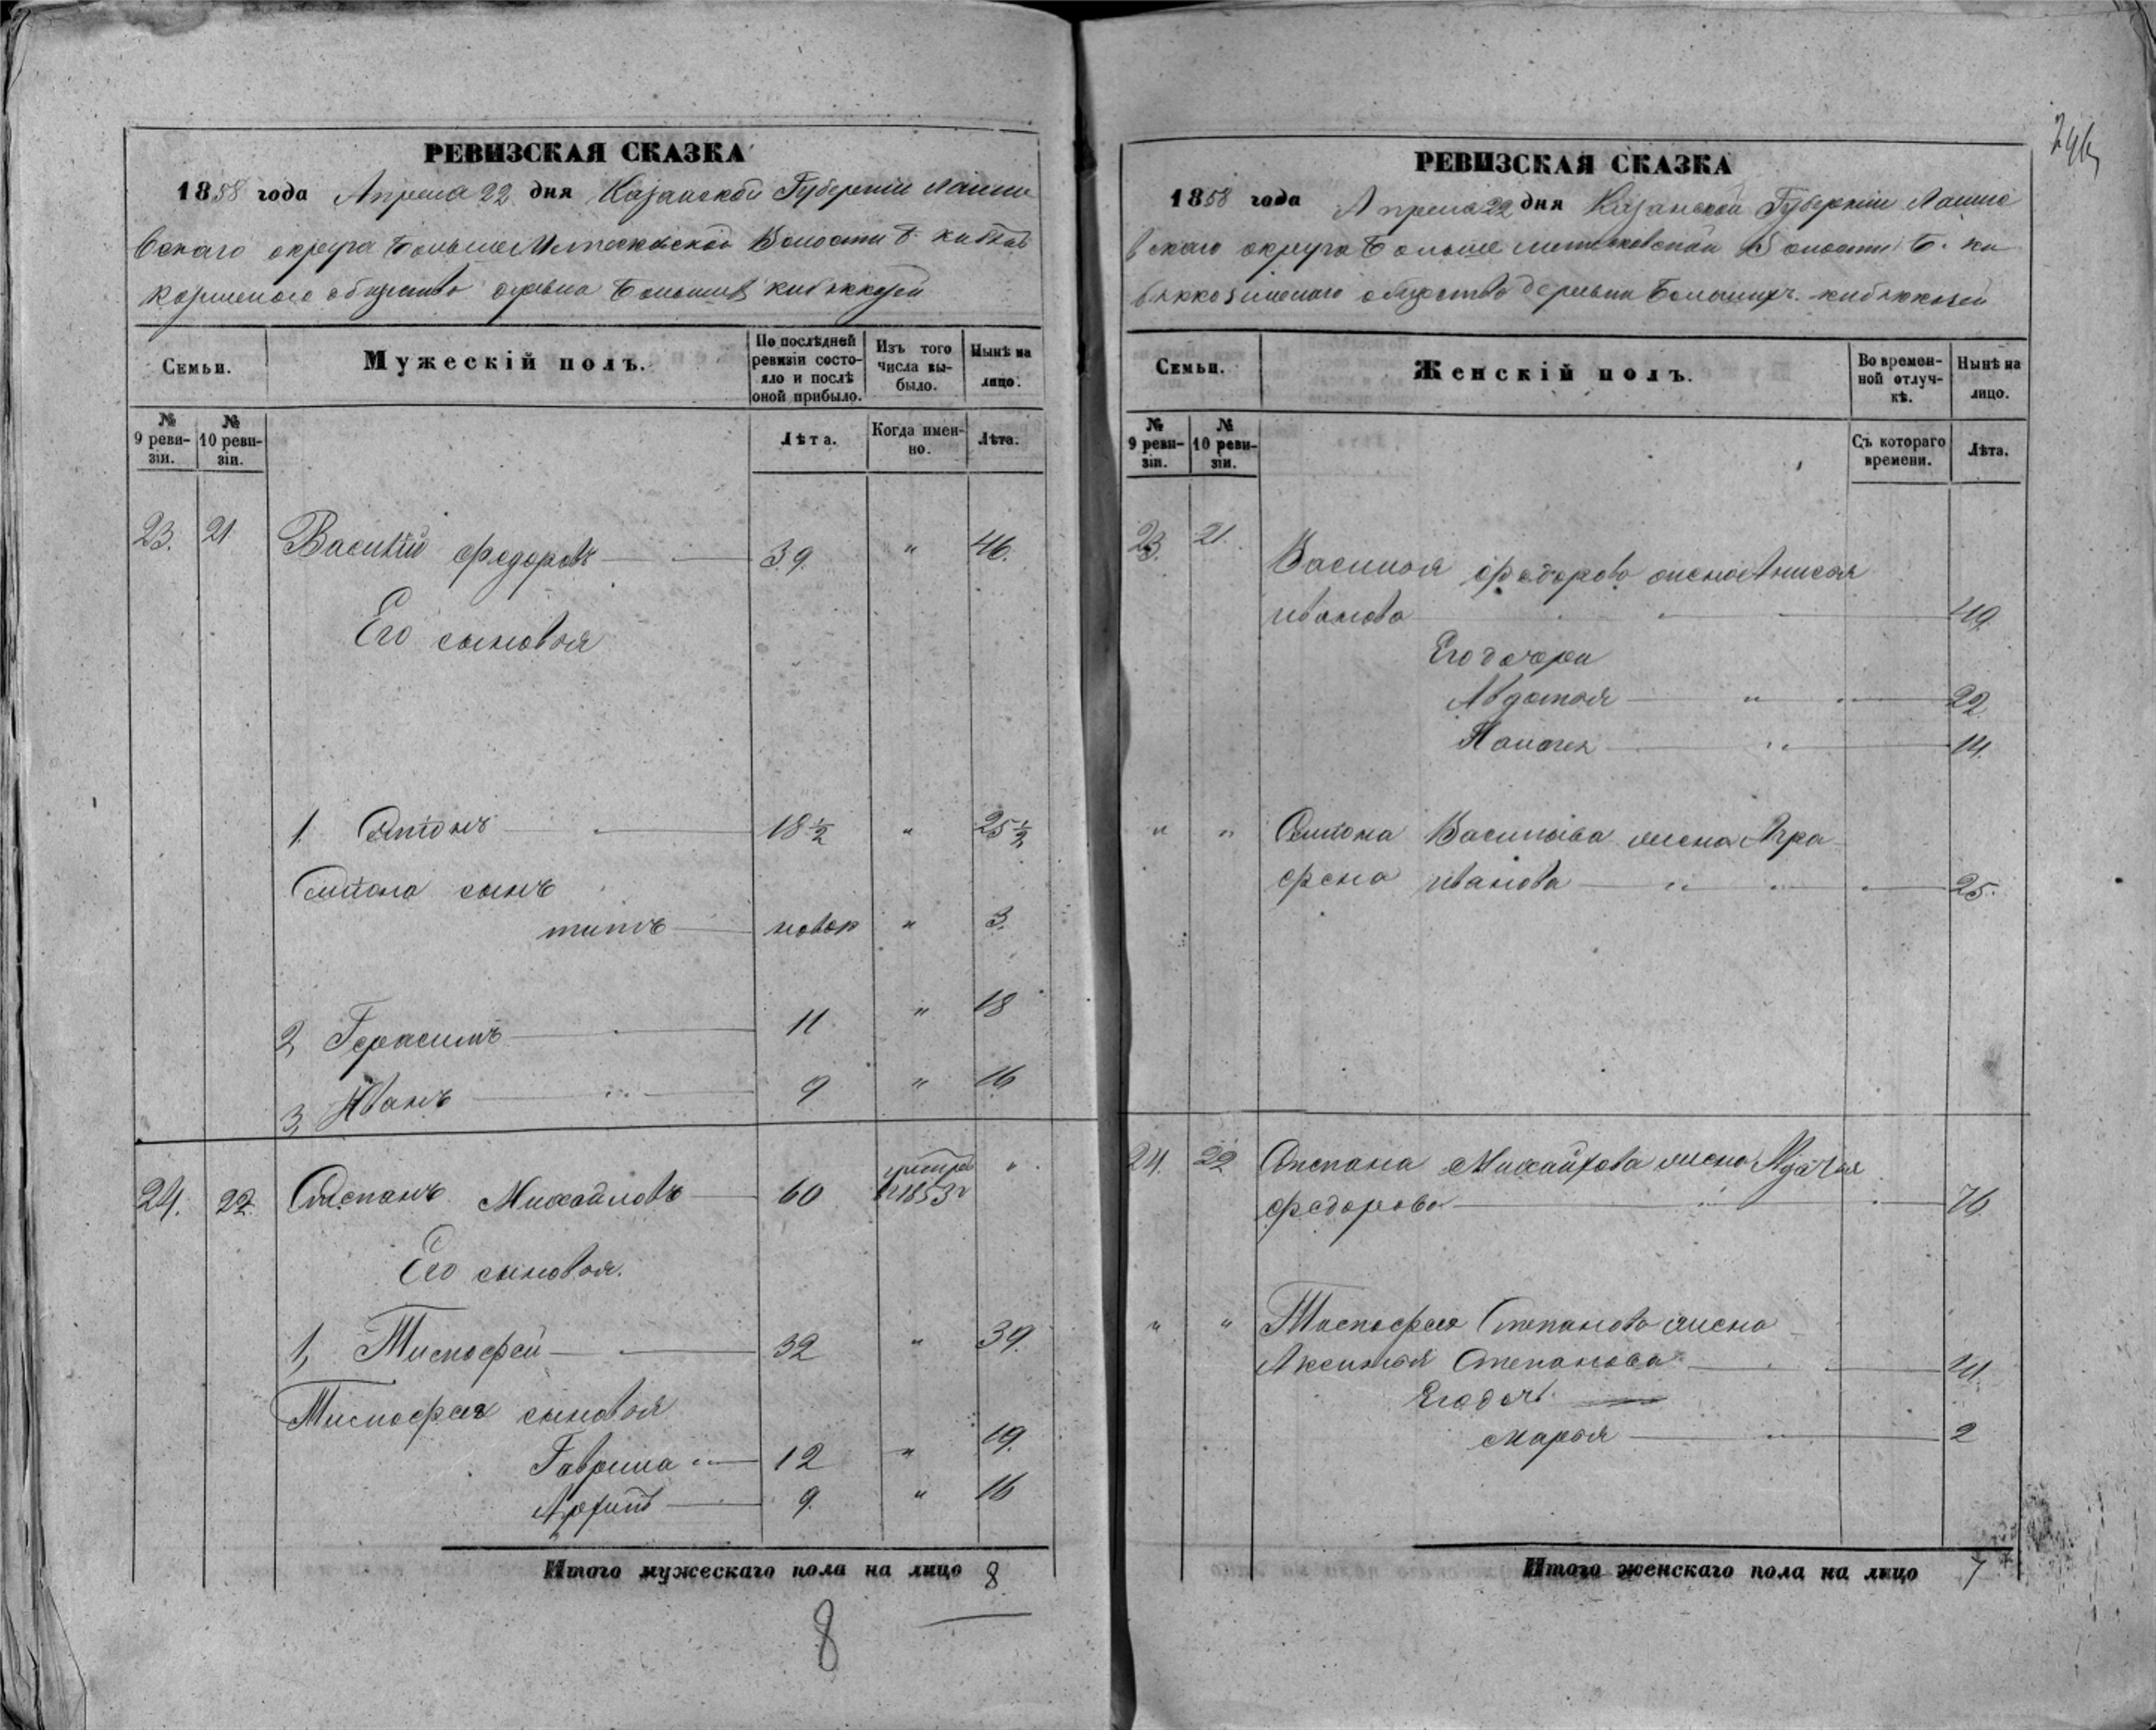 РЕВИЗСКАЯ СКАЗКА
1858 года Апреля 22 дня Казанской Губернии Лаише
вскаго округа Больше Волости Б.
общество деревна Большiя
Семьи.
Мужескій полъ.
По послѣдней ревизіи состояло и послѣ оной прибыло.
Изъ того числа выбыло.
Нынѣ на лицо.
№ 9 ревизіи.
№ 10 ревизіи.
Лѣта.
Когда именно.
Лѣта.
23. 21 Василій Федоровъ 39. " 46.
Его сыновья
1. Антонъ 18 ½ " 25 ½
сынъ
титъ новор " 3.
2, Герасимъ 11 " 18
3, Иванъ 9 " 16
24. 22. Степанъ Михайловъ 60 1853 "
Его сыновья.
1, Тимофей 32 " 39.
Тимофея сыновья
Гаврила " 12 " 19.
Архипъ 9. " 16
Итого мужескаго пола на лицо 8
8
РЕВИЗСКАЯ СКАЗКА
1858 года Апреля 22 дня Казанской Губернии Лаише
вскаго округа Больше Волости Б. ки
общество деревни Большихъ
Семьи.
Женскій полъ.
Во временной отлучкѣ.
Нынѣ на лицо.
№ 9 ревизіи.
№ 10 ревизіи.
Съ котораго времени.
Лѣта.
23. 21. Василья Федорова жена Анисья
иванова 49
Его дочери
Авдотья " 22
14.
" " Васильева жена Агра
фена иванова " 25.
24. 22 Степана Михайлова жена
федорова 76
" " Тимофея Степанова жена
Аксинья Степанова 41
Его дочь
Марья " 2
Итого женскаго пола на лицо 7